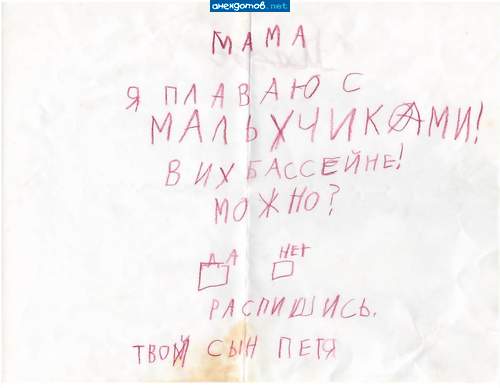 анекдотов.net
МАМА
Я ПЛАВАЮ С
МАЛЬХЧИКАМИ!
В ИХ БАССЕЙНЕ!
МОЖНО?
ДА НЕТ
РАСПИШИСЬ.
ТВОЙ СЫН ПЕТЯ